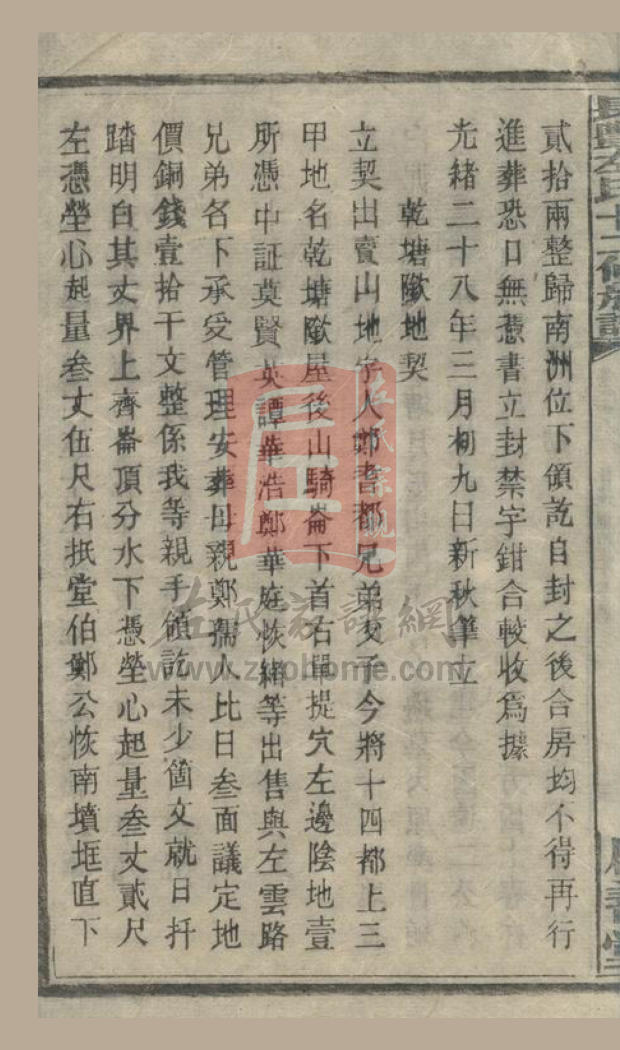 貳拾兩整歸南洲位下領訖自封之後合房均不得再行
進葬恐口無憑書立封禁字鉗合較收爲據
光緒二十八年三月初九日新秋筆立
乾塘歘地契
立契出賣山地字人鄭耆都兄弟父子今將十四都上三
甲地名乾塘歘屋後山騎崙下首右單提穴左邊陰地壹
所憑中証莫賢英譚華浩鄭華庭恢緒等出售與左雲路
兄弟名下承受管理安葬母親鄭孺人比日叁面議定地
價銅錢壹拾千文整係我等親手領訖未少箇文就日扦
踏明白其丈界上齊崙頂分水下憑塋心起量叁丈貳尺
左憑塋心起量叁丈伍尺右抵堂伯鄭公恢南墳堩直下
左氏族譜網
www.zuohome.com